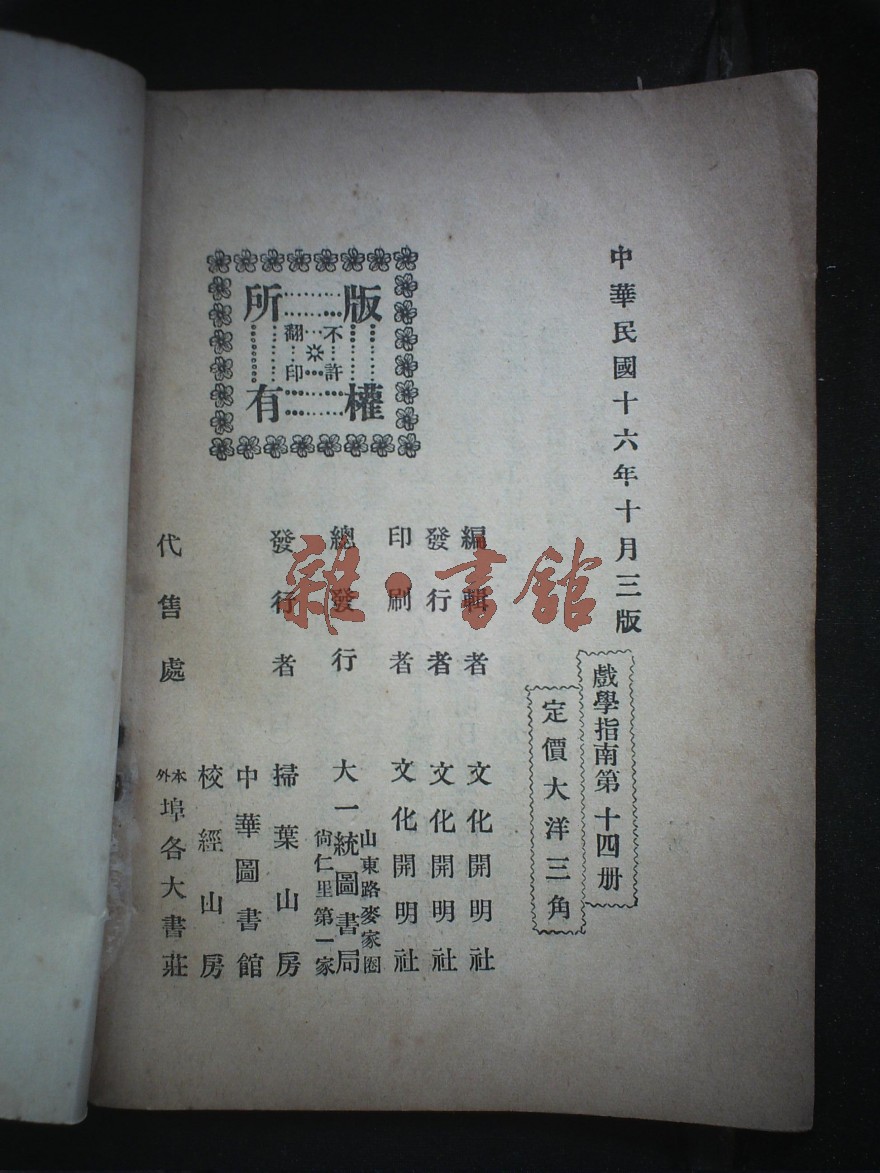 中華民國十六年十月三版
戲學指南第十四册
定價大洋三角
版權所有
不許翻印
編輯者 文化開明社
發行者 文化開明社
印刷者 文化開明社
總發行 大一統圖書局
山東路麥家圈
尙仁里第一家
發行者 掃葉山房
中華圖書館
校經山房
代售處 本外埠各大書莊
雜·書館